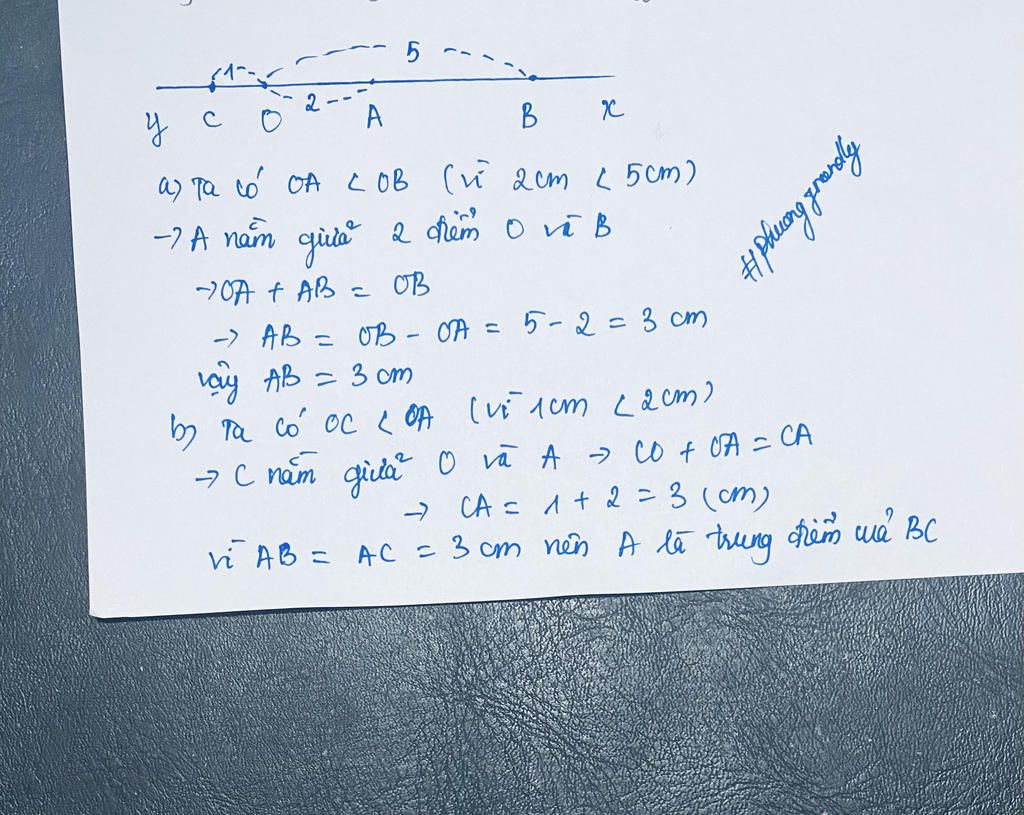 5
1
2
y C O A B x
a) Ta có OA < OB (vì 2cm < 5cm)
→ A nằm giữa 2 điểm O và B
→ OA + AB = OB
→ AB = OB - OA = 5 - 2 = 3 cm
vậy AB = 3 cm
b) Ta có OC < OA (vì 1cm < 2cm)
→ C nằm giữa O và A → CO + OA = CA
→ CA = 1 + 2 = 3 (cm)
vì AB = AC = 3 cm nên A là trung điểm của BC